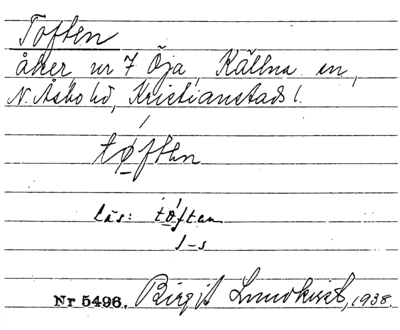 Toften
åker nr 7 Öja, Källna sn,
N. Åsbo hd, Kristianstads l.
tøften
läs: tøften
l-s
Nr 5496. Birgit Lundkvist, 1938.